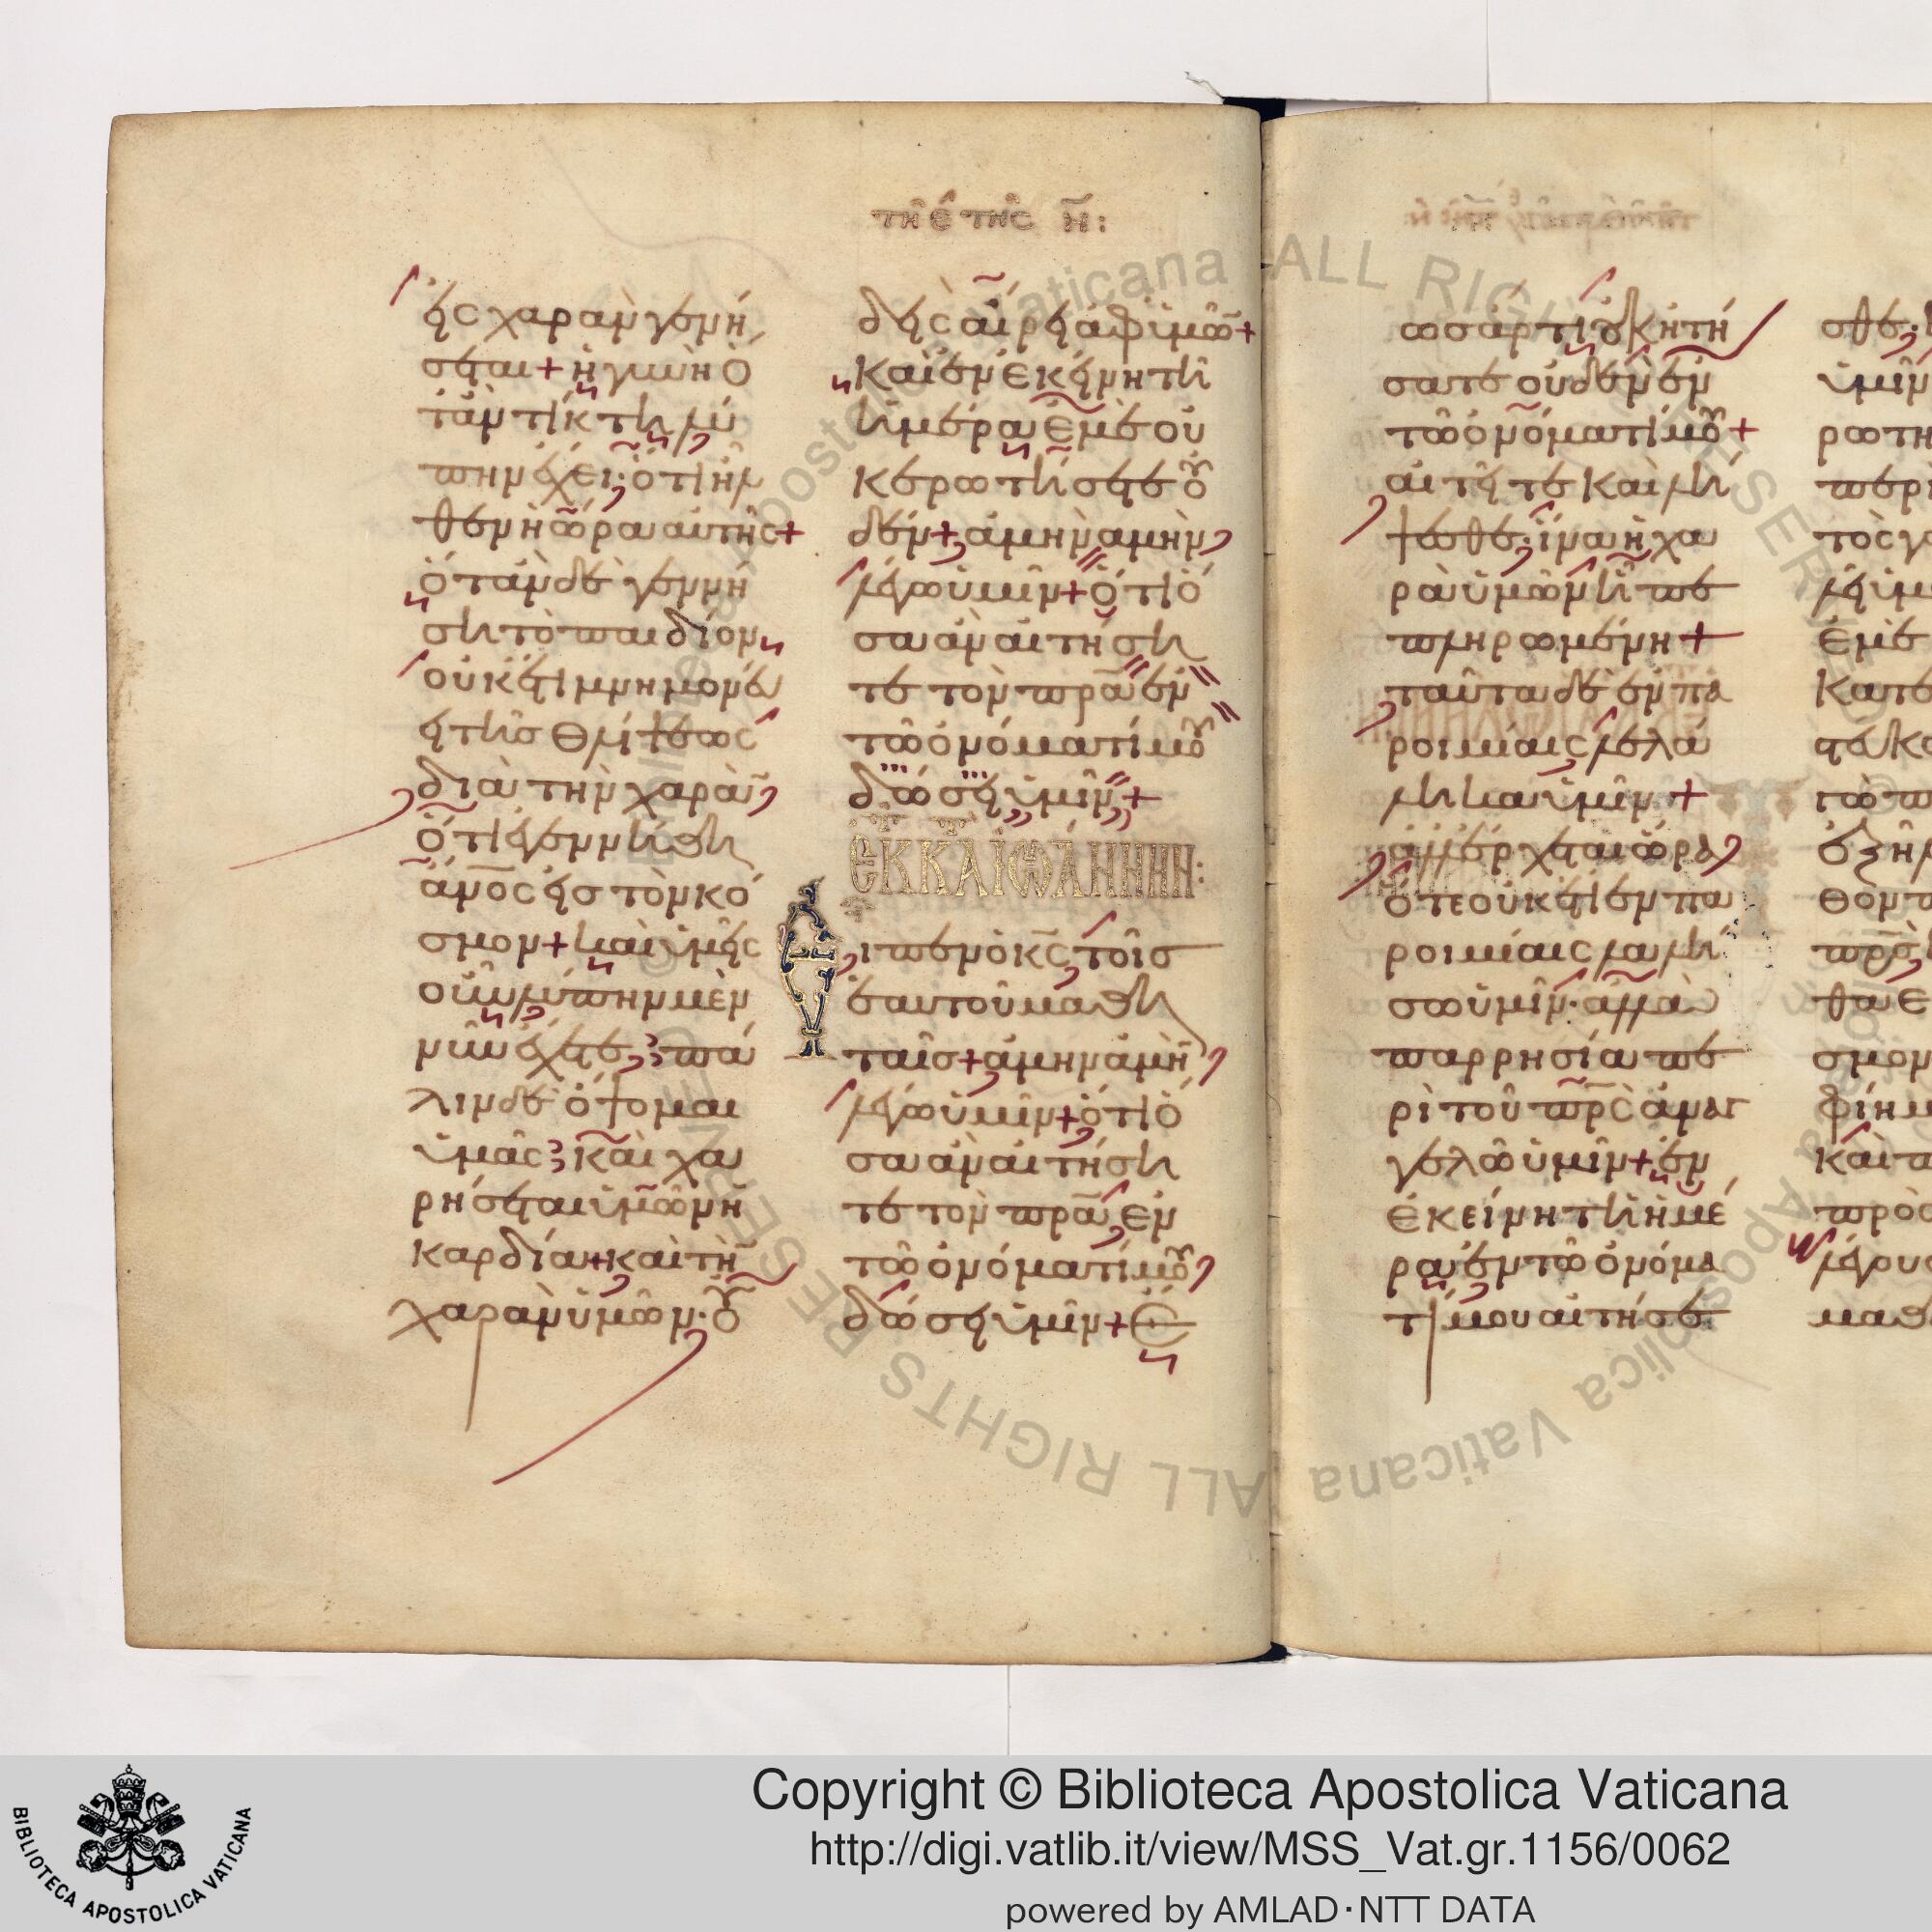 τῇ ε̅ τῆς η̅:
εἰς χαρὰν γενή
σεται + ἡ γυνὴ ὅ
τὰν τίκτῃ λύ
πην ἔχει· ὅτι ἦλ
θεν ἡ ὥρα αὐτῆς +
ὅτὰν δὲ γεννή
σῃ τὸ παιδίον
οὐκέτι μνημονεύ
ει τῆς θλίψεως
διὰ τὴν χαρὰν
ὅτι ἐγεννήθη
ἄν̅ο̅ς εἰς τὸν κό
σμον + καὶ ὑμεῖς
οὖν λύπην μὲν
νῦν ἔχετε, πά
λιν δὲ ὄψομαι
ὑμᾶς, καὶ χα
ρήσεται ὑμῶν ἡ
καρδία + καὶ τὴν
χαρὰν ὑμῶν· οὐ
δεὶς αἴρει ἀφ' ὑμῶν +
καὶ ἐν ἐκείνῃ τῇ
ἡμέρα ἐμὲ οὐ
κ ἐρωτήσετε οὐ
δέν + ἀμὴν ἀμὴν
λέγω ὑμῖν + ὅτι ὅ
σα ἂν αἰτήση
τε τὸν π̅ρ̅α ἐν
τῶ ὀνόματί μου
δώσει ὑμῖν +
ἐκ κ̅α̅ ἰωάννην:
Εἶπεν ὁ κ̅ς τοῖς
ἑαυτοῦ μαθη
ταῖς + ἀμὴν ἀμὴν
λέγω ὑμῖν + ὅτι ὅ
σα ἂν αἰτήση
τε τὸν π̅ρ̅α ἐν
τῶ ὀνόματί μου
δώσει ὑμῖν + ἕ
ως ἄρτι οὐκ ἠτή
σατε οὐδὲν ἐν
τῶ ὀνόματί μου +
αἰτεῖτε καὶ λή
ψεσθε· ἵνα ἡ χα
ρὰ ὑμῶν ᾖ πε
πληρωμένη +
ταῦτα δὲ ἐν πα
ροιμίαις λελά
ληκα ὑμῖν +
ἀλλ' ἔρχεται ὥρα
ὅτε οὐκέτι ἐν πα
ροιμίαις λαλή
σω ὑμῖν· ἀλλὰ
παρρησία πε
ρὶ τοῦ π̅ρ̅ς ἀναγ
γελῶ ὑμῖν + ἐν
ἐκείνη τῆ ἡμέ
ρα ἐν τῶ ὀνόμα
τί μου αἰτήσε
σθε·
ὑμῖν
ρωτή
περὶ
τὸς γ
λεῖ ὑμ
ἐμὲ
σμον
BIBLIOTECA APOSTOLICA VATICANA
Copyright © Biblioteca Apostolica Vaticana
http://digi.vatlib.it/view/MSS_Vat.gr.1156/0062
powered by AMLAD·NTT DATA